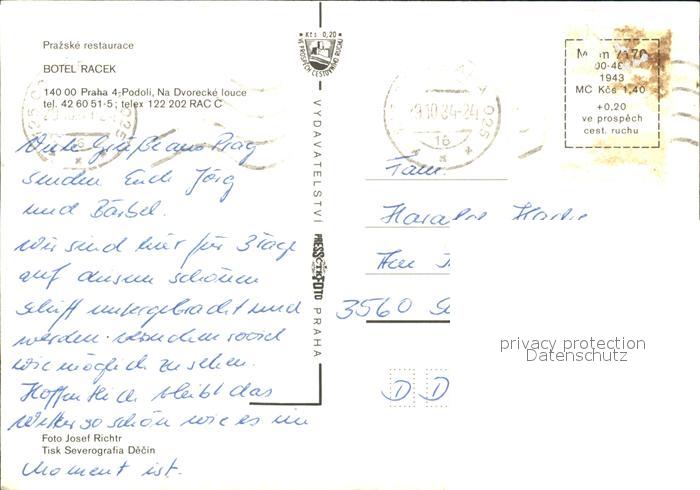 Pražské restaurace
BOTEL RACEK
140 00 Praha 4-Podolí, Na Dvorecké louce
tel. 42 60 51-5; telex 122 202 RAC C
Grüße aus Prag
senden Euch Jörg
und Bärbel.
Wir sind hier für 3 Tage
auf diesem schönen
Schiff untergebracht und
werden versuchen soviel
wie möglich zu sehen.
Hoffentlich bleibt das
Wetter so schön wie es im
Foto Josef Richtr
Tisk Severografia Děčín
Moment ist.
Kčs 0,20
VE PROSPĚCH CESTOVNÍHO RUCHU
VYDAVATELSTVÍ PRESSFOTO PRAHA
-9.10.84-24
025
1б
00-46
1943
MC Kčs 1,40
+0,20
ve prospěch
cest. ruchu
Fam.
3560
privacy protection
Datenschutz
D D